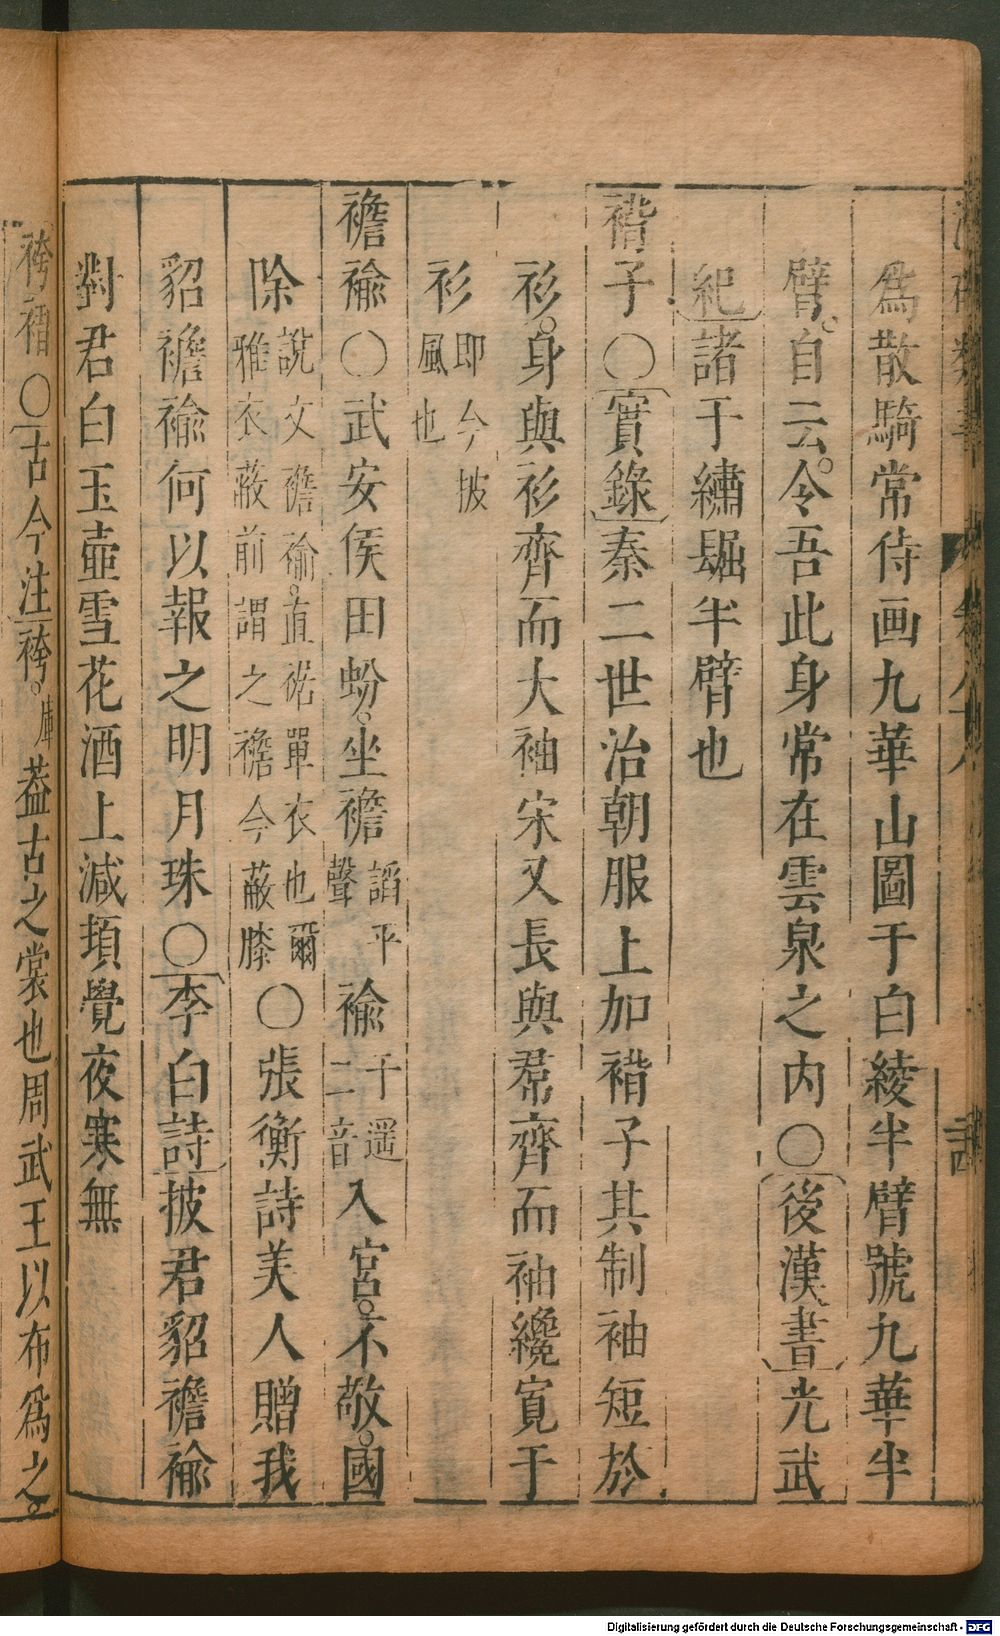 為散騎常侍画九華山圖于白綾半臂號九華半
臂自云令吾此身常在雲泉之内○後漢書光武
紀諸于繡䘿半臂也
褙子○實錄秦二世治朝服上加褙子其制袖短於
衫身與衫齊而大袖宋又長與帬齊而袖纔寬于
衫即今披風也
襜褕○武安侯田蚡坐襜謟平聲褕于遥二音入宮不敬國
除說文襜褕直裾單衣也爾雅衣蔽前謂之襜今蔽膝○張衡詩美人贈我
貂襜褕何以報之明月珠○李白詩披君貂襜褕
對君白玉壺雪花酒上滅頓覺夜寒無
袴褶○古今注袴庫葢古之裳也周武王以布為之
Digitalisierung gefördert durch die Deutsche Forschungsgemeinschaft - DFG